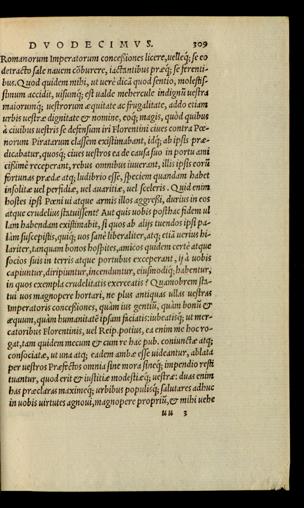 DVODECIMVS. 309
Romanorum Imperatorum concessiones licere, uelleq́; se eo
detracto sale nauem cōburere, iactantibus præq́; se ferenti-
bus. Quod quidem mihi, ut uerè dicā quod sentio, molestis-
simum accidit, uisumq́; est ualde mehercule indignū uestra
maiorumq́; uestrorum æquitate ac frugalitate, addo etiam
urbis uestræ dignitate & nomine, eoq́; magis, quòd quibus
à ciuibus uestris se defensum iri Florentini ciues contra Pœ-
norum Piratarum classem existimabant, idq́; ab ipsis præ-
dicabatur, quosq́; ciues uestros ea de causa suo in portu ami
cissimè receperant, rebus omnibus iuuerant, illis ipsis eorū
fortunas prædæ atq; ludibrio esse, speciem quandam habet
insolitæ uel perfidiæ, uel auaritiæ, uel sceleris. Quid enim
hostes ipsi Pœni ui atque armis illos aggressi, durius in eos
atque crudelius statuissent? Aut quis uobis posthac fidem ul
lam habendam existimabit, si quos ab alijs tuendos ipsi pa-
làm suscepistis, quiq́; uos sanè liberaliter, atq; etiā uerius hi-
lariter, tanquam bonos hospites, amicos quidem certè atque
socios suis in terris atque portubus exceperant, ij à uobis
capiuntur, diripiuntur, incenduntur, eiusmodiq́; habentur,
in quos exempla crudelitatis exerceatis? Quamobrem sta-
tui uos magnopere hortari, ne plus antiquas ullas uestras
Imperatoris concessiones, quàm ius gentiū, quàm bonū &
æquum, quàm humanitatē ipsam faciatis: iubeatisq́; ut mer-
catoribus Florentinis, uel Reip. potius, ea enim me hoc ro-
gat, tam quidem mecum & cum re hac pub. coniunctæ atq;
consociatæ, ut una atq; eadem ambæ esse uideantur, ablata
per uestros Præfectos omnia sine mora sineq́; impendio resti
tuantur, quod erit & iustitiæ modestiæq́; uestræ: duas enim
has præclaras maximeq́; urbibus populisq́; salutares adhuc
in uobis uirtutes agnoui, magnopere propriū, & mihi uehe
uu 3